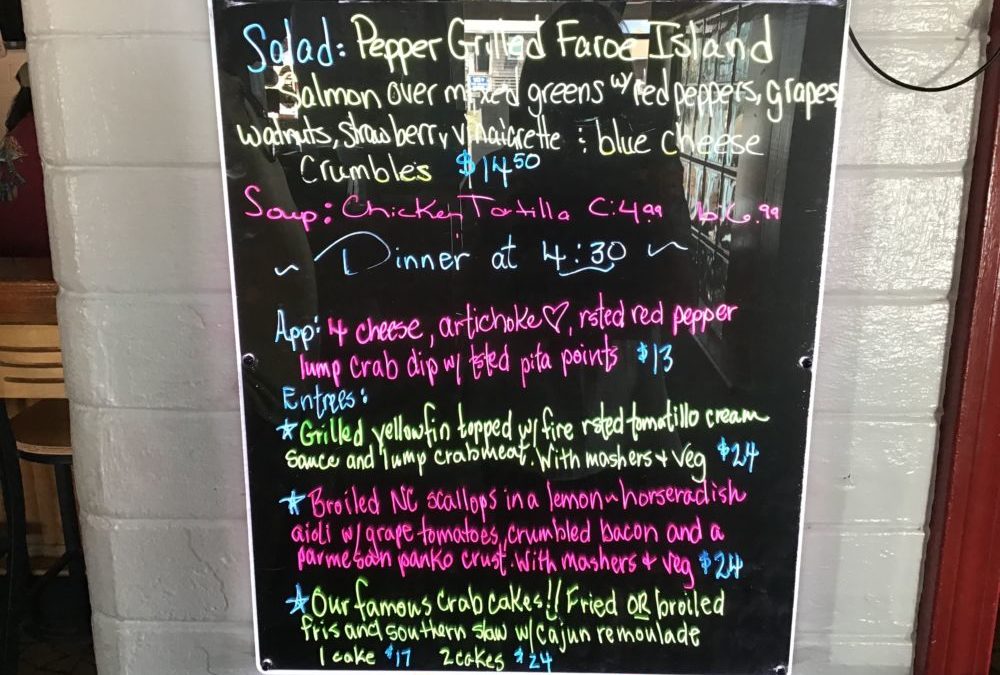 Salad: Pepper Grilled Faroe Island
Salmon over mixed greens w/ red peppers, grapes,
walnuts, strawberry vinaigrette : blue cheese
Crumbles $14.50
Soup: Chicken Tortilla C:4.99 b:6.99
~ Dinner at 4:30 ~
App: 4 cheese, artichoke♡, rsted red pepper
lump crab dip w/ tsted pita points $13
Entrees:
☆Grilled yellowfin topped w/ fire rsted tomatillo cream
sauce and lump crabmeat. With mashers + veg $24
☆Broiled NC scallops in a lemon-horseradish
aioli w/ grape tomatoes, crumbled bacon and a
parmesan panko crust. With mashers + veg $24
☆Our famous Crab cakes!! Fried OR broiled
fris and southern slaw w/ Cajun remoulade
1 cake $17 2 cakes $24